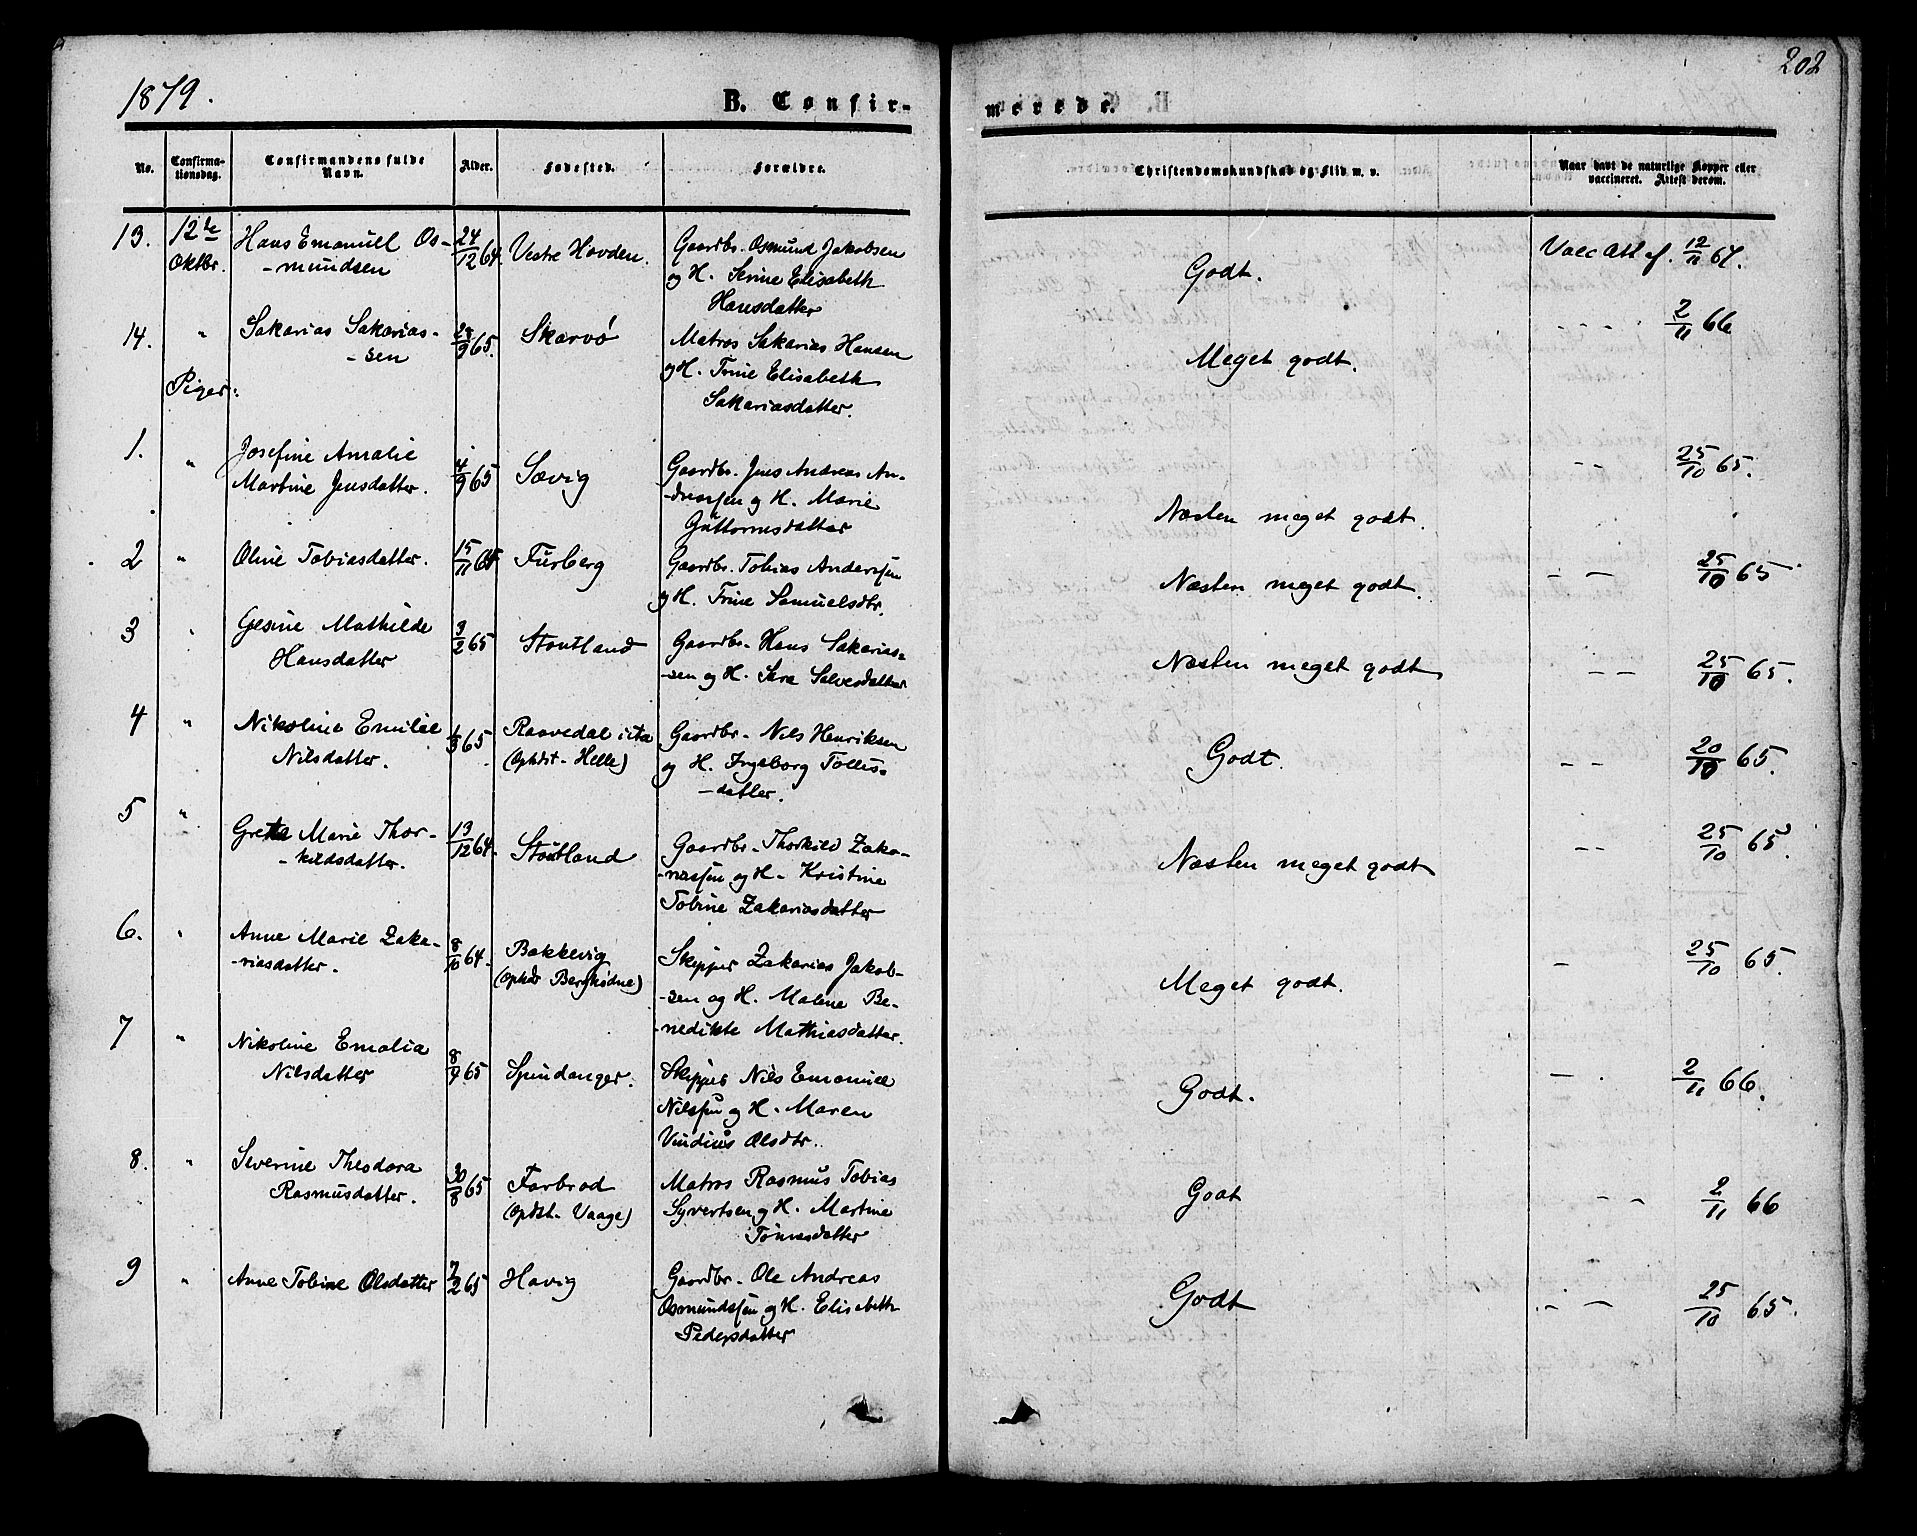 202
1879.
B. Confir-
merede.
No.
Confirma-
tionsdag.
Confirmandens fulde
Navn.
Alder.
Fødested.
Forældre.
Christendomskundskab og Flid m. v.
Naar havt de naturlige Kopper eller
vaccineret. Attest derom.
13. 12te Hans Emanuel Os- 24/12 64. Vestre Hovden. Gaardbr. Osmund Jakobsen
Oktbr. -mundsen og H. Serine Elisabeth
Hansdatter
Godt. Vacc Att af. 12/11 67.
14. " Sakarias Sakarias- 65. Skarvø Matros Sakarias Hansen
-sen og H. Trine Elisabeth
Sakariasdatter.
Meget godt. - - - - 2/11 66
Piger:
1. " Josefine Amalie 4/9 65 Sævig Gaardbr. Jens Andreas An-
Martine Jensdatter. -dreassen og H. Marie
Guttormsdatter
Næsten meget godt. - - 25/10 65.
2 " Oline Tobiasdatter. 15/11 Furberg Gaardbr. Tobias Andersen
og H. Trine Samuelsdtr.
Næsten meget godt. - - 25/10 65
3 " Gesine Mathilde 3/2 65 Stoutland Gaardbr. Hans Sakarias-
Hansdatter -sen og H. Sara Salvesdatter
Næsten meget godt - - 25/10 65.
4 " Nikoline Emilie 65 Raavedal Gaardbr. Nils Henriksen
Nilsdatter. (Ophdst. Helle) og H. Ingeborg Tollis-
-datter.
Godt. - - 20/10 65.
5 " Grete Marie Thor- 13/12 64. Stoutland Gaardbr. Thorkild Zaka-
-kildsdatter. -riassen og H. Kristine
Tobine Zakariasdatter
Næsten meget godt - - 25/10 65.
6. " Anne Marie Zaka- 8/10 64. Bakkevig Skipper Zakarias Jakob-
-riasdatter. (Ophdst Berghødne) -sen og H. Malene Be-
-nedikte Mathiasdatter.
Meget godt. - 25/10 65.
7 " Nikoline Emalia 65 Spindanger. Skipper Nils Emanuel
Nilsdatter Nilssen og H. Maren
Olsdtr.
Godt. - . 2/11 66.
8. " Severine Theodora 30/8 65 Farbrod Matros Rasmus Tobias
Rasmusdatter. (Opdst. Vaage) Syvertsen og H. Martine
Tønnesdatter
Godt - - 2/11 66
9 " Anne Tobine Olsdatter 7/2 65 Havig Gaardbr. Ole Andreas
Osmundssen og H. Elisabeth
Pedersdatter
Godt - - 25/10 65.